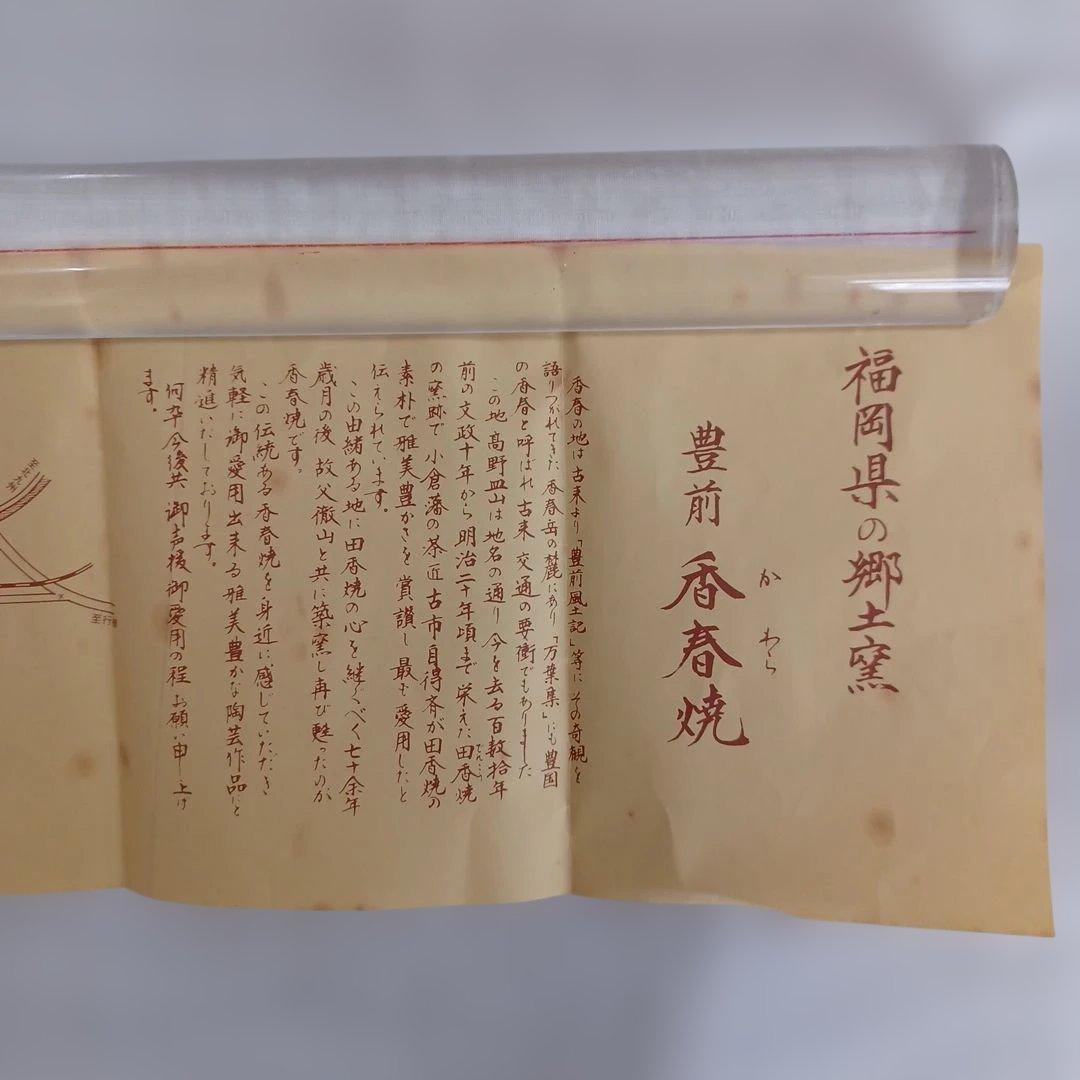 福岡県の郷土窯
豊前 香春焼
かわら
香春の地は古来より「豊前風土記」等に その奇観を
語りつがれてきた 香春岳の麓にあり「万葉集」にも豊国
の香春と呼ばれ 古来 交通の要衝でもありました
この地 高野皿山は地名の通り 今を去る百数拾年
前の文政十年から明治二十年頃まで栄えた田香焼
でんこう
の窯跡で 小倉藩の茶匠 古市自得斉が田香焼の
素朴で雅美豊かさを賞讃し 最も愛用したと
伝えられています。
この由緒ある地に田香焼の心を継ぐべく七十余年
歳月の後 故父徹山と共に築窯し再び甦ったのが
香春焼です。
この伝統ある香春焼を身近に感じていただき
気軽に御愛用出来る雅美豊かな陶芸作品にと
精進いたしております。
何卒今後共 御声援御愛用の程 お願い申し上げ
ます。
至行橋